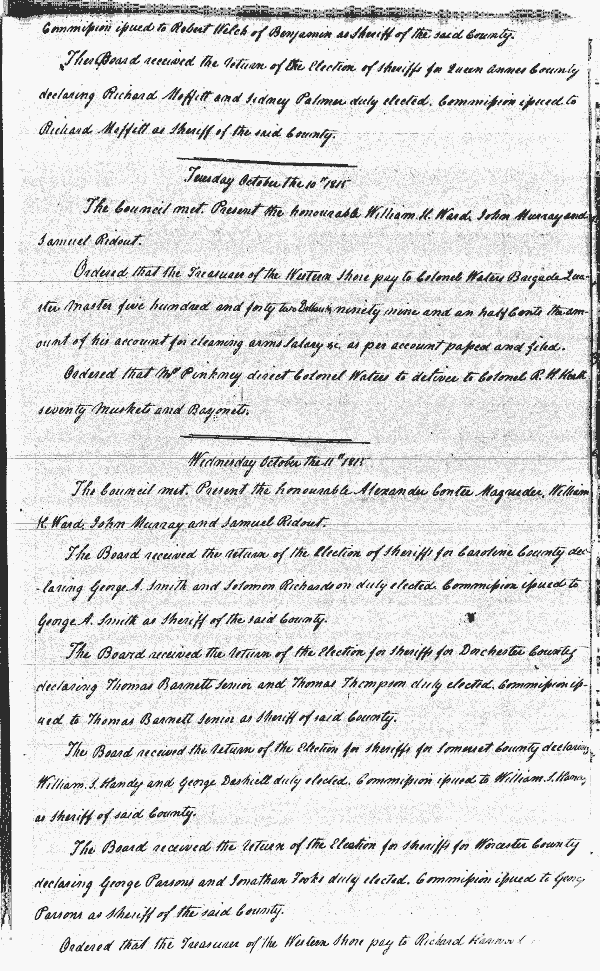 Commission issued to Robert Welch of Benjamin as Sheriff of the said County.
The Board received the return of the Election of Sheriffs for Queen Annes County
declaring Richard Moffitt and Sidney Palmer duly elected. Commission issued to
Richard Moffitt as Sheriff of the said County.
Tuesday October the 10th 1815
The Council met. Present the honourable William H. Ward, John Murray and
Samuel Ridout.
Ordered that the Treasurer of the Western Shore pay to Colonel Waters Brigade Qua-
ter Master five hundred and forty two Dollars, ninety nine and an half Cents the am-
ount of his account for cleaning arms salary &c. as per account passed and filed.
Ordered that Mr Pinkney direct Colonel Waters to deliver to Colonel R. H. Heath
seventy Muskets and Bayonets.
Wednesday October the 11th 1815
The Council met. Present the honourable Alexander Contee Magruder, William
H. Ward, John Murray and Samuel Ridout.
The Board received the return of the Election of Sheriffs for Caroline County dec-
-laring George A. Smith and Solomon Richardson duly elected. Commission issued to
George A. Smith as Sheriff of the said County.
The Board received the return of the Election for Sheriffs for Dorchester County
declaring Thomas Barnett Senior and Thomas Thompson duly elected. Commission iss-
ued to Thomas Barnett Senior as Sheriff of said County.
The Board received the return of the Election for Sheriffs for Somerset County declaring
William S. Handy and George Dashiell duly elected. Commission issued to William S. Handy
as Sheriff of said County.
The Board received the return of the Election for Sheriffs for Worcester County
declaring George Parsons and Jonathan Fooks duly elected. Commission issued to George
Parsons as Sheriff of the said County.
Ordered that the Treasurer of the Western Shore pay to Richard Harwood